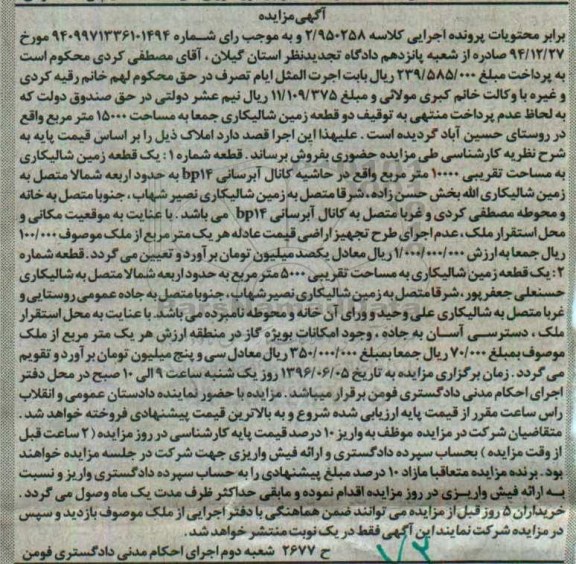 آگهی مزایده
برابر محتویات پرونده اجرایی کلاسه ۲/۹۵۰۲۵۸ و به موجب رای شماره ۹۴۰۹۹۷۱۳۳۶۱۰۱۴۹۴ مورخ
۹۴/۱۲/۲۷ صادره از شعبه پانزدهم دادگاه تجدیدنظر استان گیلان ، آقای مصطفی کردی محکوم است
به پرداخت مبلغ ۲۳۹/۵۸۵/۰۰۰ ریال بابت اجرت المثل ایام تصرف در حق محکوم لهم خانم رقیه کردی
و غیره با وکالت خانم کبری مولائی و مبلغ ۱۱/۱۰۹/۳۷۵ ریال نیم عشر دولتی در حق صندوق دولت که
به لحاظ عدم پرداخت منتهی به توقیف دو قطعه زمین شالیکاری جمعا به مساحت ۱۵۰۰۰ متر مربع واقع
در روستای حسین آباد گردیده است . علیهذا این اجرا قصد دارد املاک ذیل را بر اساس قیمت پایه به
شرح نظریه کارشناسی طی مزایده حضوری بفروش برساند . قطعه شماره ۱ : یک قطعه زمین شالیکاری
به مساحت تقریبی ۱۰۰۰۰ متر مربع واقع در حاشیه کانال آبرسانی bp۱۴ به حدود اربعه شمالا متصل به
زمین شالیکاری الله بخش حسن زاده ،شرقا متصل به زمین شالیکاری نصیر شهاب ، جنوبا متصل به خانه
و محوطه مصطفی کردی و غربا متصل به کانال آبرسانی bp۱۴ می باشد . با عنایت به موقعیت مکانی و
محل استقرار ملک ، عدم اجرای طرح تجهیز اراضی قیمت عادله هر یک متر مربع از ملک موصوف ۱۰۰/۰۰۰
ریال جمعا به ارزش ۱/۰۰۰/۰۰۰/۰۰۰ ریال معادل یکصد میلیون تومان برآورد و تعیین می گردد . قطعه شماره
۲ : یک قطعه زمین شالیکاری به مساحت تقریبی ۵۰۰۰ متر مربع به حدود اربعه شمالا متصل به شالیکاری
حسنعلی جعفرپور ،شرقا متصل به زمین شالیکاری نصیر شهاب ، جنوبا متصل به جاده عمومی روستایی و
غربا متصل به شالیکاری علی وحید و ورای آن خانه و محوطه نامبرده می باشد . با عنایت به محل استقرار
ملک ، دسترسی آسان به جاده ، وجود امکانات بویژه گاز در منطقه ارزش هر یک متر مربع از ملک
موصوف بمبلغ ۷۰/۰۰۰ ریال جمعا بمبلغ ۳۵۰/۰۰۰/۰۰۰ ریال معادل سی و پنج میلیون تومان برآورد و تقویم
می گردد . زمان برگزاری مزایده به تاریخ ۱۳۹۶/۰۶/۰۵ روز یک شنبه ساعت ۹ الی ۱۰ صبح در محل دفتر
اجرای احکام مدنی دادگستری فومن برقرار میباشد . مزایده با حضور نماینده دادستان عمومی و انقلاب
راس ساعت مقرر از قیمت پایه ارزیابی شده شروع و به بالاترین قیمت پیشنهادی فروخته خواهد شد .
متقاضیان شرکت در مزایده موظف به واریز ۱۰ درصد قیمت پایه کارشناسی در روز مزایده ( ۲ ساعت قبل
از وقت مزایده ) بحساب سپرده دادگستری و ارائه فیش واریزی جهت شرکت در جلسه مزایده خواهند
بود . برنده مزایده متعاقبا مازاد ۱۰ درصد مبلغ پیشنهادی را به حساب سپرده دادگستری واریز و نسبت
به ارائه فیش واریزی در روز مزایده اقدام نموده و مابقی حداکثر ظرف مدت یک ماه وصول می گردد .
خریداران ۵ روز قبل از مزایده می توانند ضمن هماهنگی با دفتر اجرایی از ملک موصوف بازدید و سپس
در مزایده شرکت نمایند این آگهی فقط در یک نوبت منتشر خواهد شد.
ح ۲۶۷۷ شعبه دوم اجرای احکام مدنی دادگستری فومن
۷۳